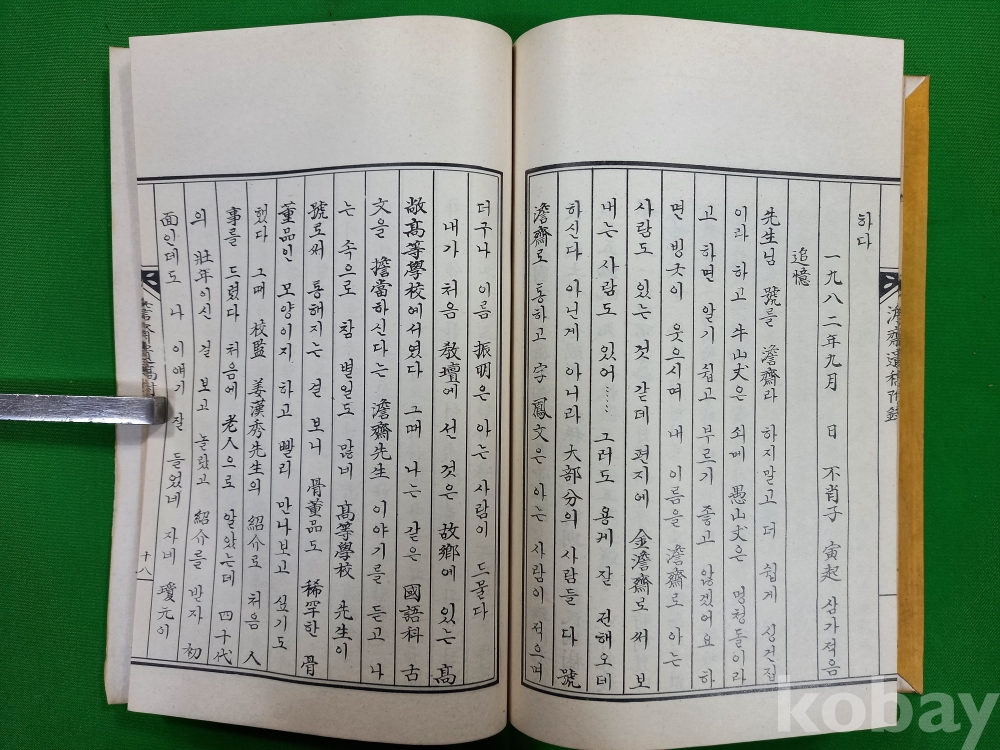 澹齋遺稿附錄
하다
一九八二年九月 日 不肖子 寅起 삼가적음
追憶
先生님 號를 澹齋라 하지말고 더 쉽게 싱건집
이라 하고 牛山丈은 쇠메 愚山丈은 멍청돌이라
고 하면 알기 쉽고 부르기 좋고 않겠어요 하
면 빙긋이 웃으시며 내 이름을 澹齋로 아는
사람도 있는 것 같데 편지에 金澹齋로 써 보
내는 사람도 있어…… 그러도 용케 잘 전해오데
하신다 아닌게 아니라 大部分의 사람들 다 號
澹齋로 통하고 字 鳳文은 아는 사람이 적으며
더구나 이름 振明은 아는 사람이 드물다
내가 처음 敎壇에 선 것은 故鄕에 있는 高
敞高等學校에서였다 그때 나는 같은 國語科 古
文을 擔當하신다는 澹齋先生 이야기를 듣고 나
는 속으로 참 별일도 많네 高等學校 先生이
號로써 통해지는 걸 보니 骨董品도 稀罕한 骨
董品인 모양이지 하고 빨리 만나보고 싶기도
했다 그때 校監 姜漢秀先生의 紹介로 처음 人
事를 드렸다 처음에 老人으로 알았는데 四十代
의 壯年이신 걸 보고 놀랐고 紹介를 받자 初
面인데도 나 이얘기 잘 들었네 자네 瓊元이
十八